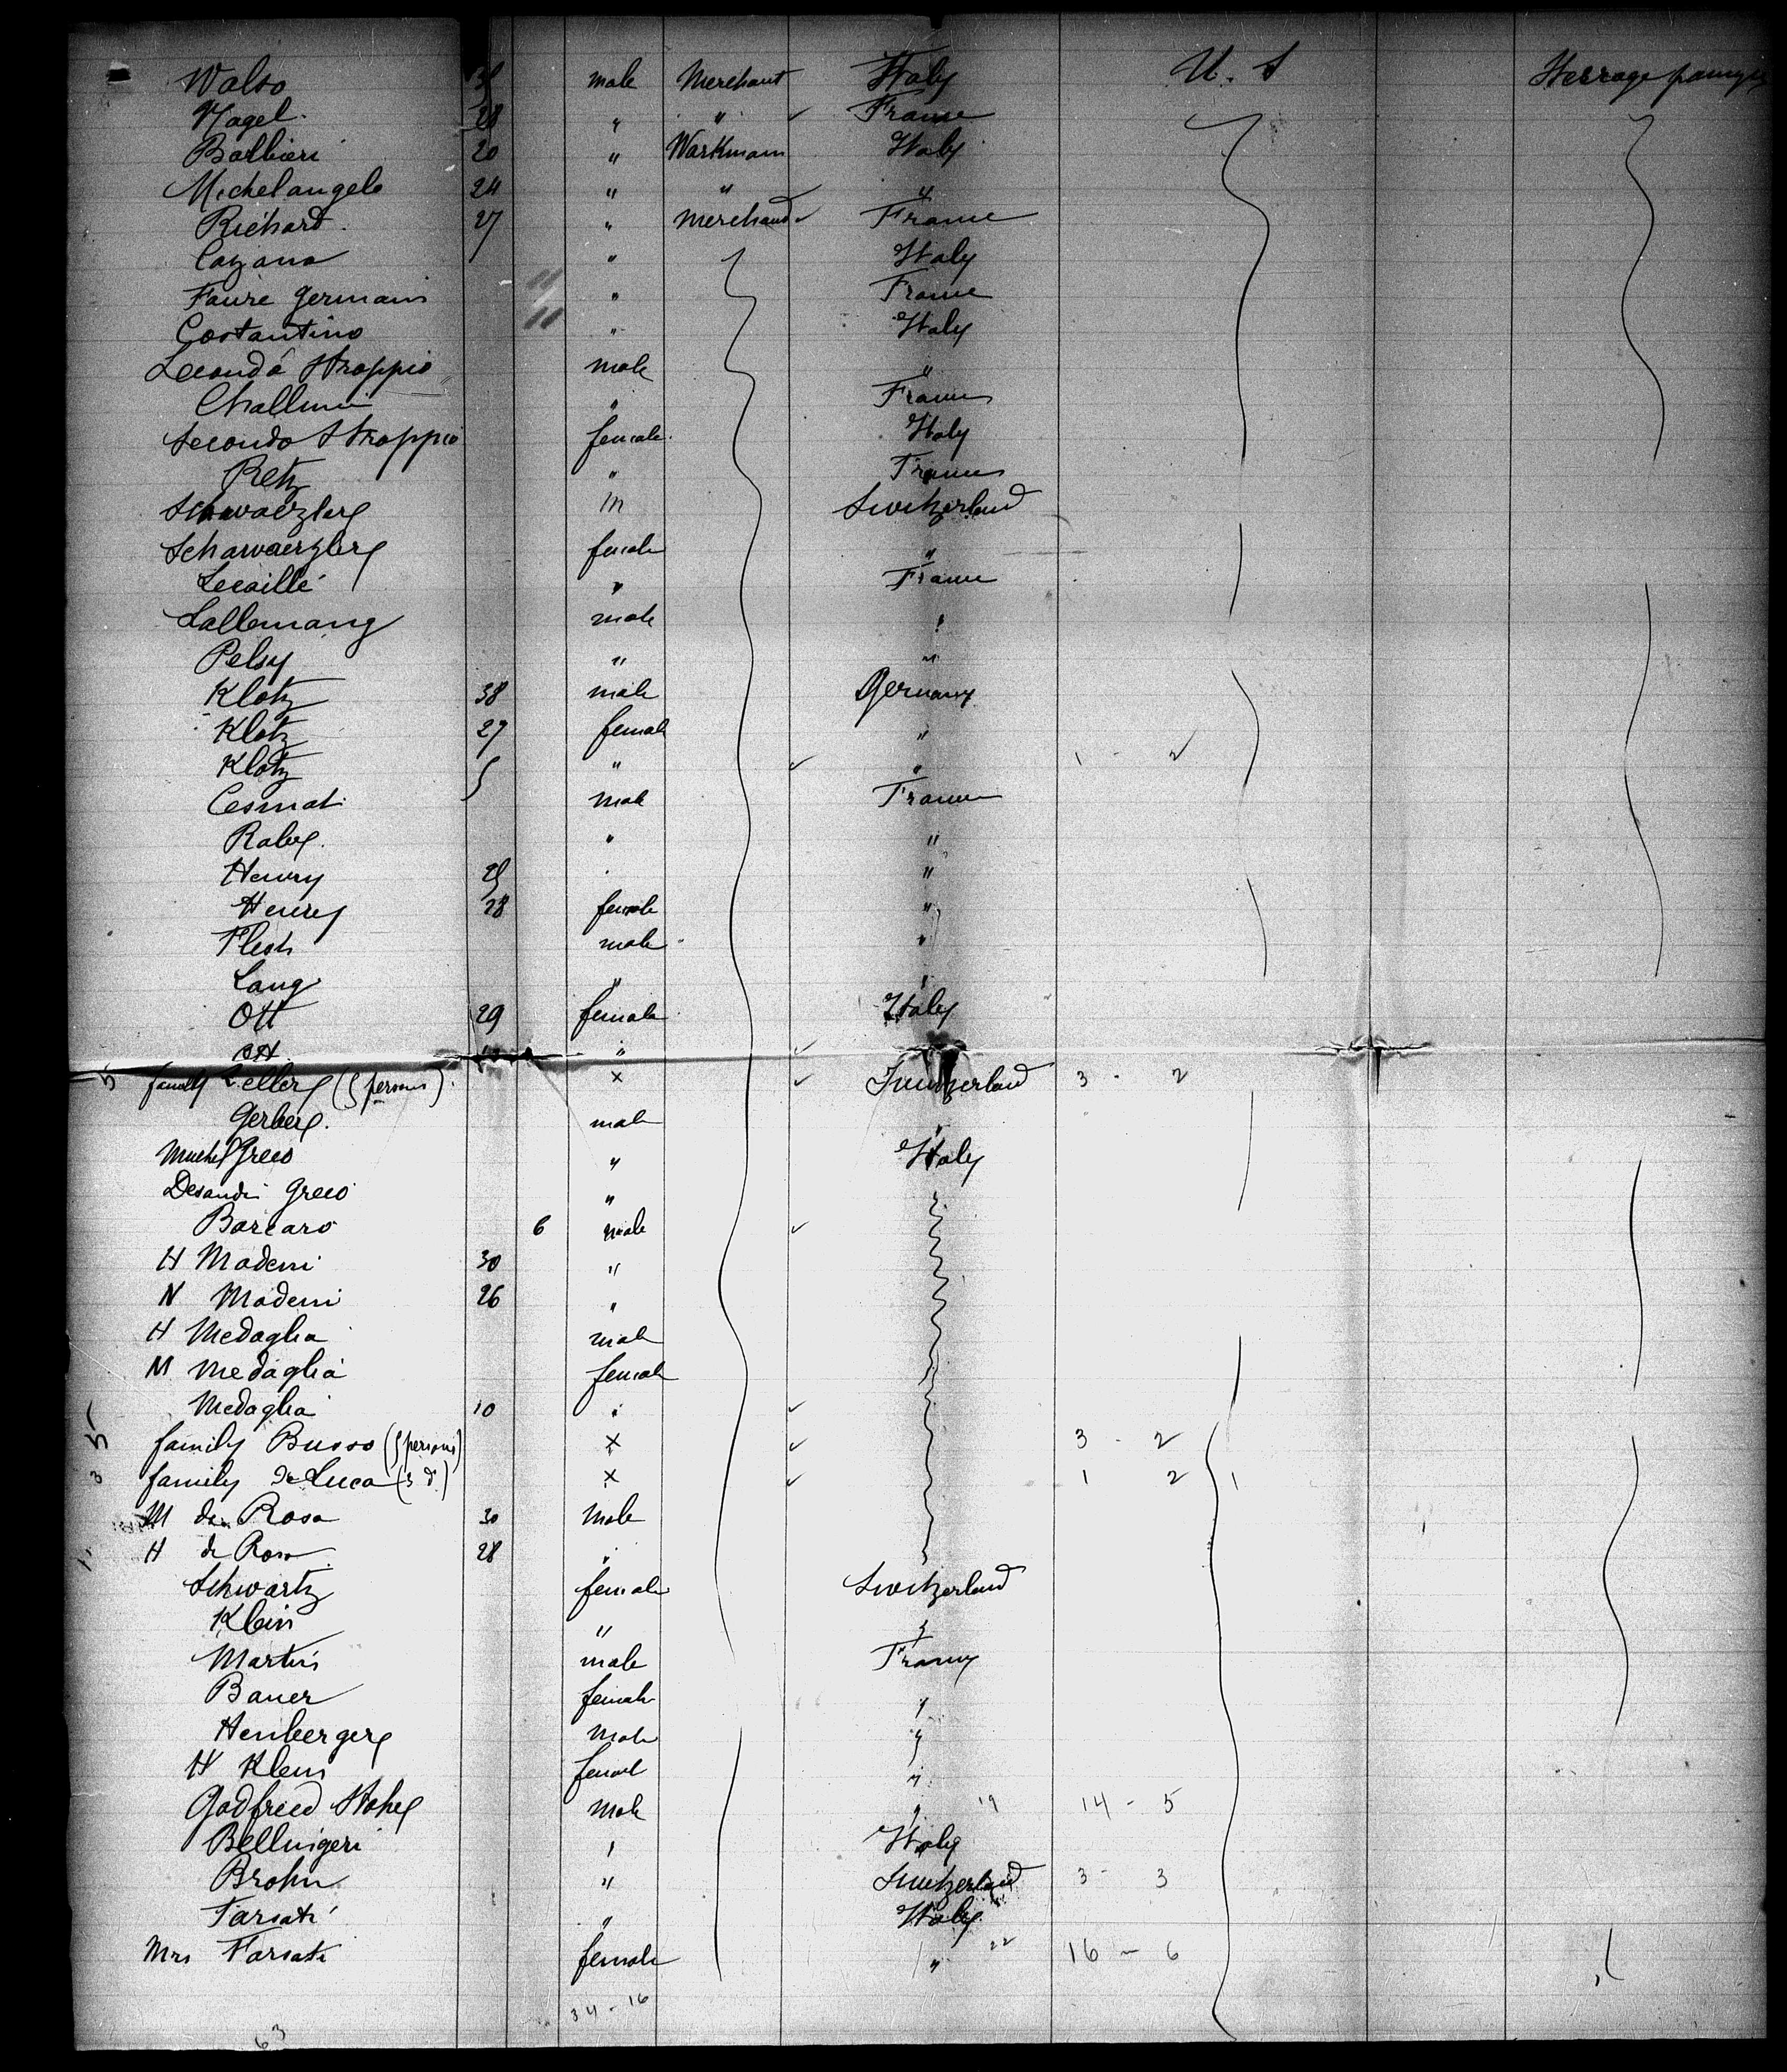 Walso male Merchant Italy U. S
Nagel 28 " " ✓ France
Barbieri 20 " Workmam Italy
Michelangelo 24 " " "
Richard 27 " merchand ✓ France
Cazana " Italy
Faure Germain " France
Costantino " Italy
Secondo Stroppio male "
" France
Secondo Stroppio female Italy
Retz " France
m Switzerland
female "
Lecaillé " France
Lallemang male "
Pelsy " "
Klotz 38 male Germany
Klotz 27 female "
Klotz 5 " ✓ " 1 - 2
Cesmat male France
Raley " "
Henry "
Henry 28 female "
Flesh male "
Lang " "
Ott 29 female Italy
Ott " ✓
5 family Zeller (5 persons) × ✓ Switzerland 3 - 2
Gerber male "
Michel Greco " Italy
Greco "
Barcaro 6 male ✓
H Maderni 30 "
N Maderni 26 "
H Medaglia male
M Medaglia female
Medaglia 10 " ✓
5 family Busso (5 persons) × ✓ 3 - 2
3 family de Luca (3 d) × ✓ 1 2 1
M de Rosa 30 Male
H de Rosa 28 "
Schwartz female Switzerland
Klein " "
Martin male France
Bauer female "
Henberger Male "
H Klein female "
Godfried Male " 19 14 - 5
Bellingeri " Italy
Brohn " Switzerland 3 - 3
Farsati " Italy
Mrs Farsati female " 22 16 - 6
34 - 16
63